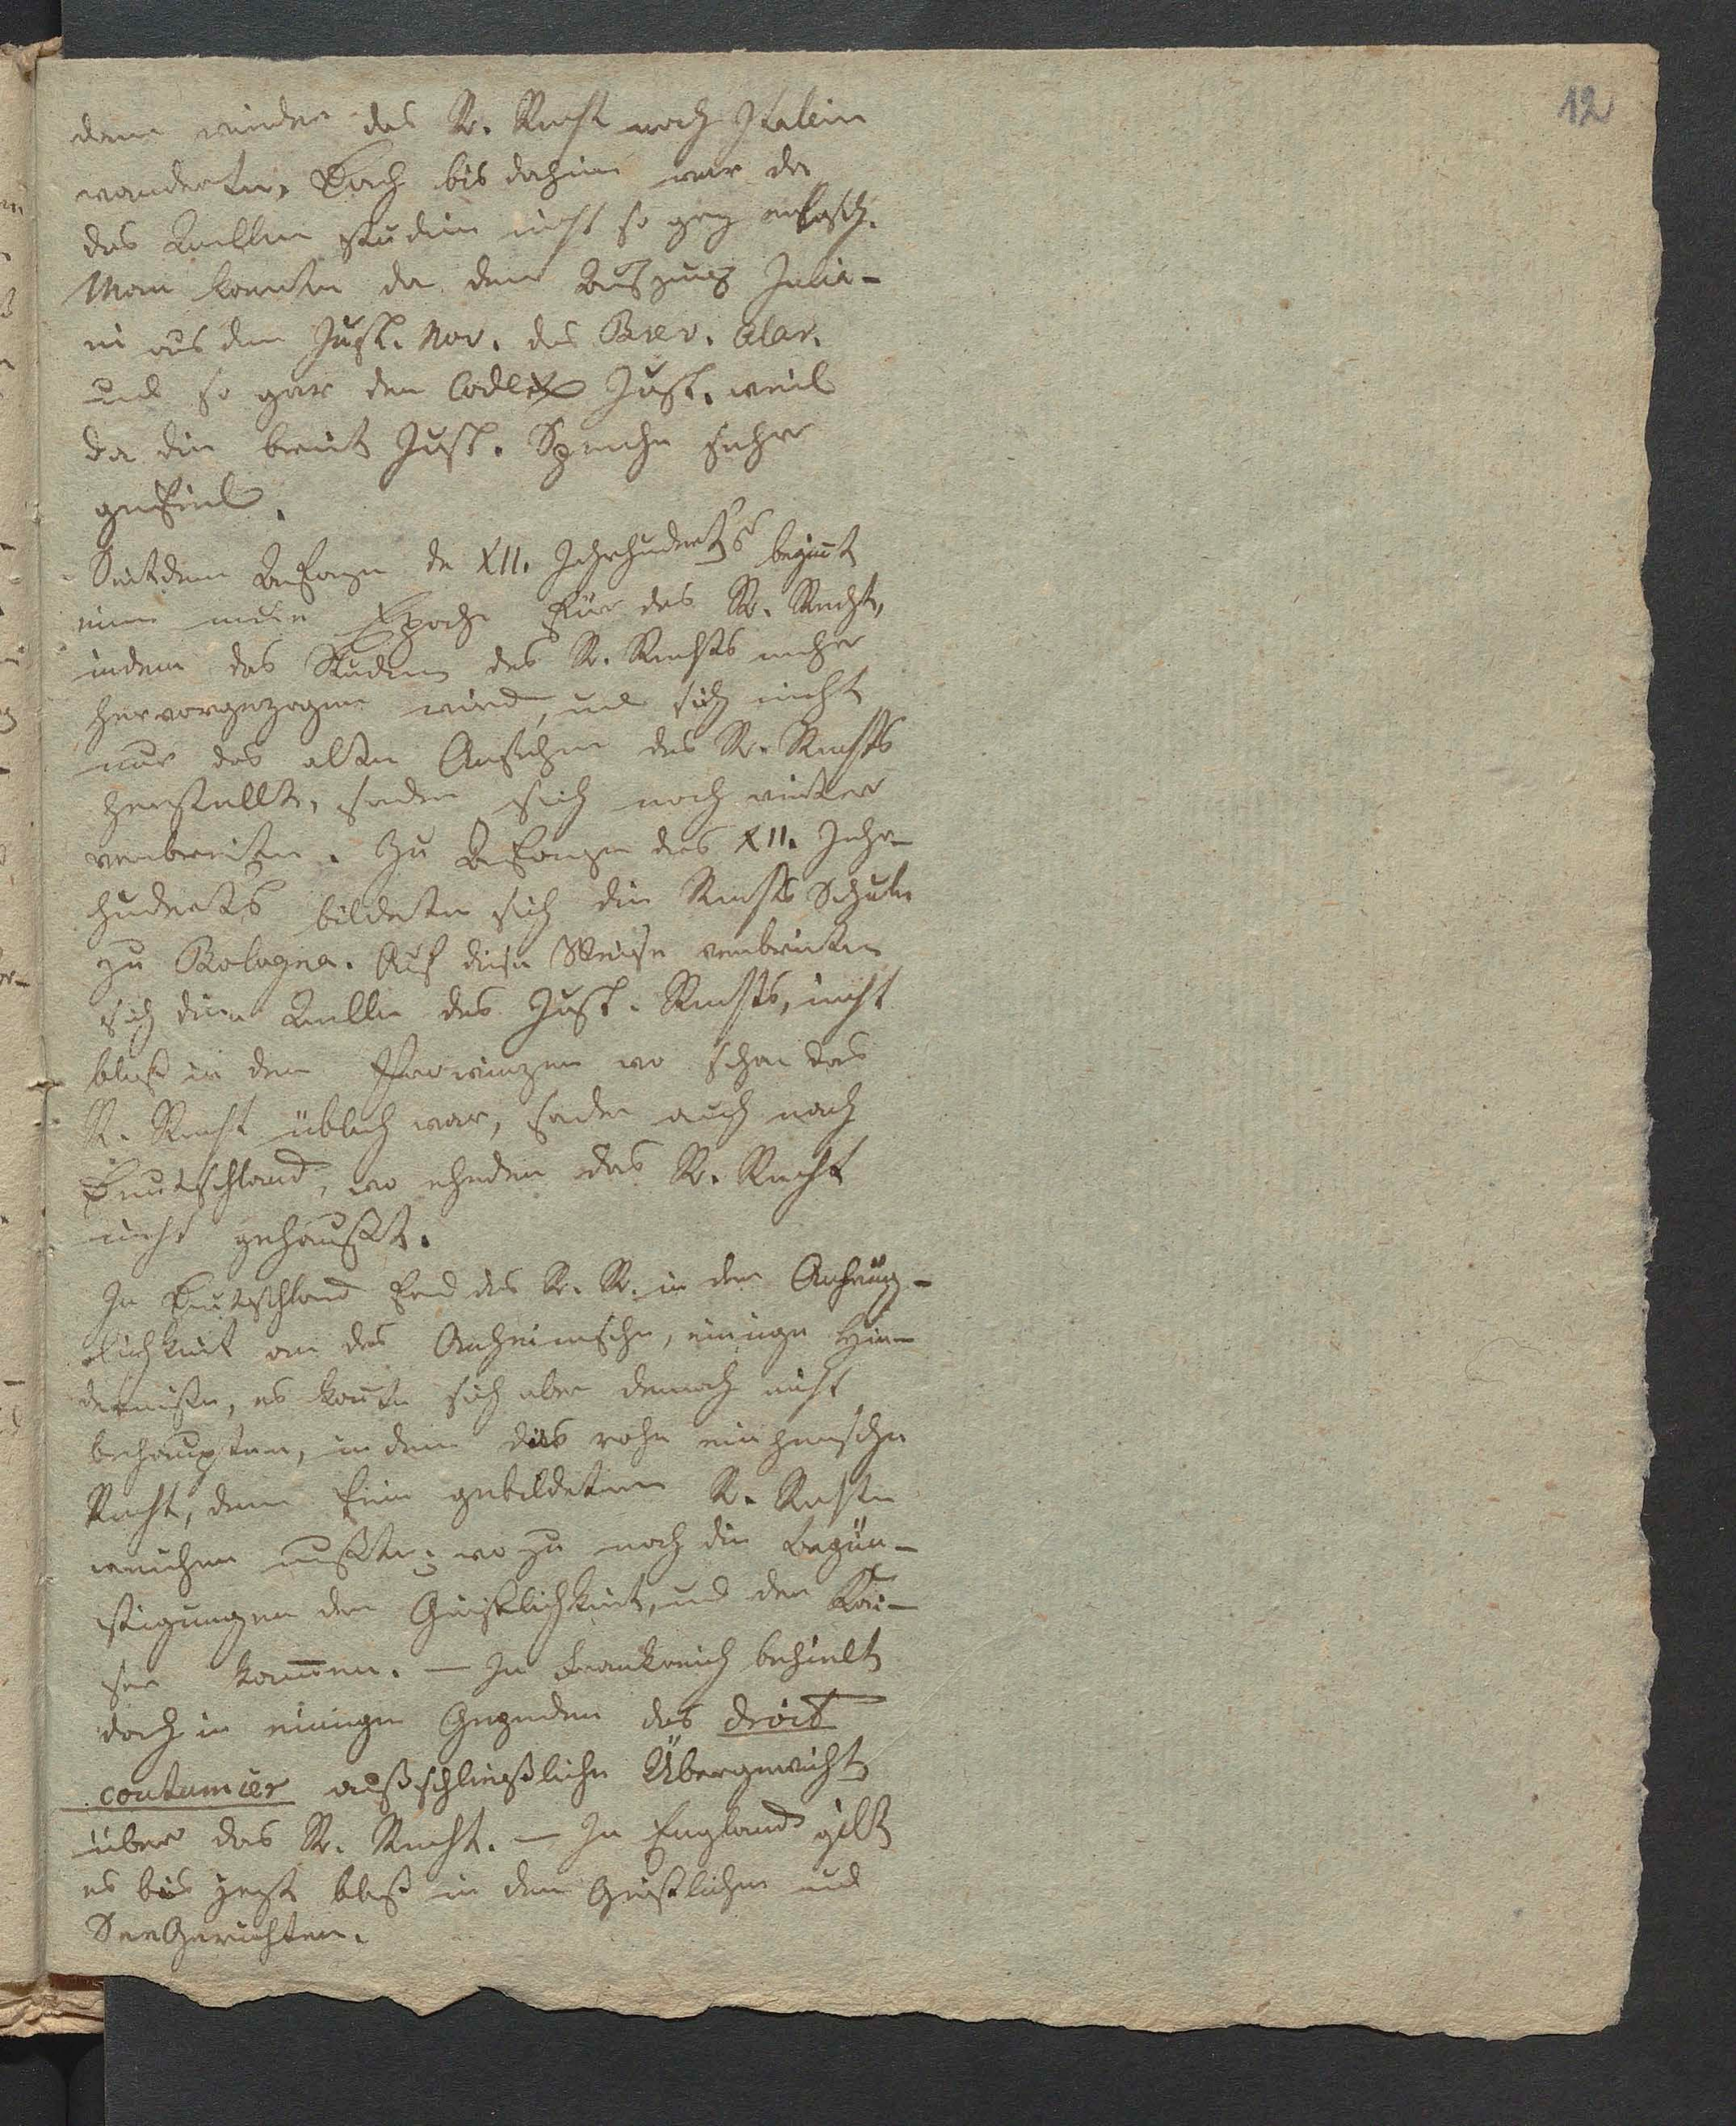 12
dann wieder das R. Recht nach Italien
wanderte. Doch bis dahin war da
das Quellen studium nicht so ganz
Man kannte da den Auszug Julia-
ni aus den Just. Nov. das Brev. Alar.
und so gar den Codex Just. weil
da die breit Just. Sprache sehr
gefiel.
Seit dem Anfange de XII. Jahrhunderts beginnt
eine neue Epoche für das R. Recht,
indem das Studium des R. Rechts mehr
hervorgezogen wird, und sich nicht
nur das alte Ansehen des R. Rechts
herstellt, sondern sich noch weiter
verbreitete. Zu Anfange des XII. Jahr-
hunderts bildete sich die Rechts Schule
zu Bologna. Auf diese Weise verbreiteten
sich die Quellen des Just. Rechts, nicht
bloß in den Provinzen wo schon das
R. Recht üblich war, sondern auch nach
Deutschland, wo ehedem das R. Recht
nicht gehaußt.
In Deutschland fand das R. R. in der Anhäng-
lichkeit an das Anheimische, einige Hin-
dernisse, es konnte sich aber dennoch nicht
behaupten, in dem das rohe einheimische
Recht, dem fein gebildeten R. Rechte
weichen mußte; wo zu noch die begün-
stigungen der Geistlichkeit, und der Kai-
ser kamen. — In Frankreich behielt
doch in einigen Gegenden das droit
coutumier ausschließliche Übergewicht
über das R. Recht. — In England gilt
es bis jezt bloß in den Geistlichen und
SeeGerichten.